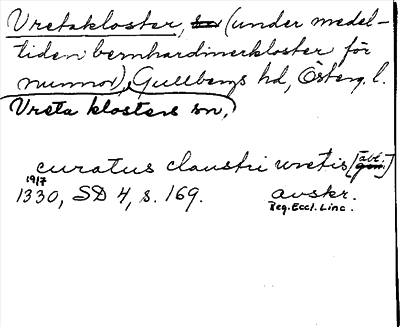 Vretakloster, sn (under medel-
tiden bernhardinerkloster för
nunnor), Gullbergs hd, Österg. l.
Vreta klosters sn,
curatus claustri wretis [abl. gen.]
19/7
1330, SD 4, s. 169. avskr.
Reg. Eccl. Linc.